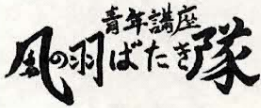 青年講座
風の羽ばたき隊